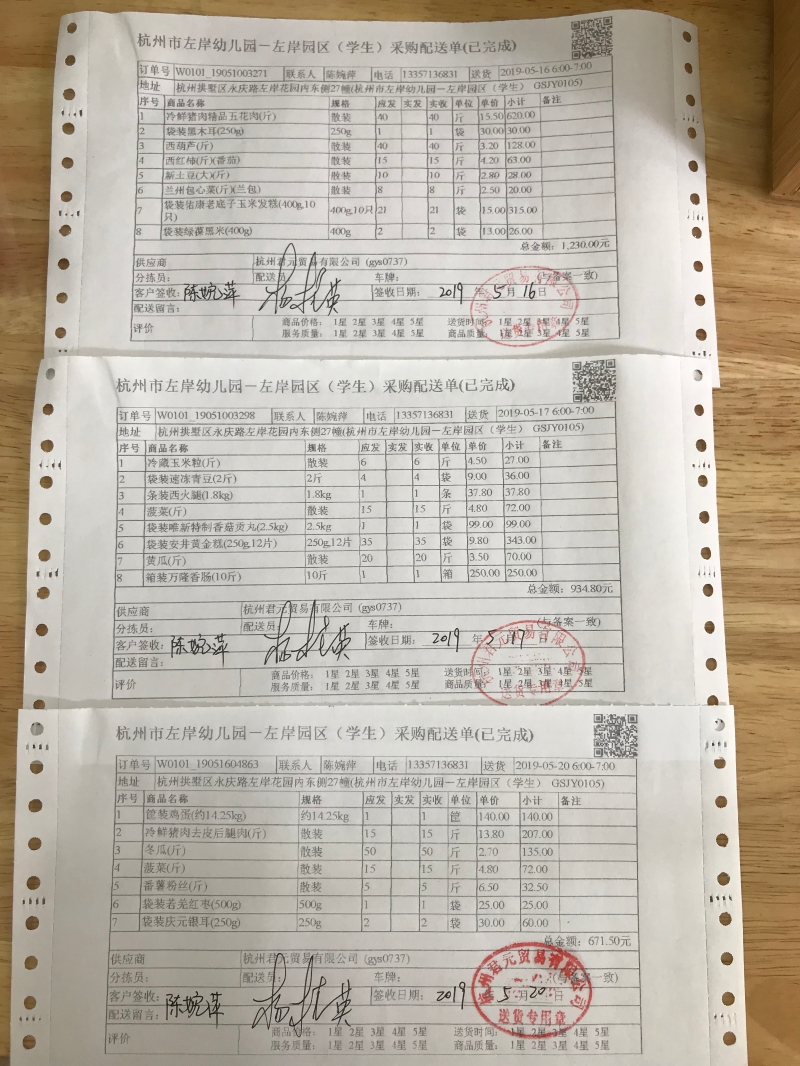 杭州市左岸幼儿园－左岸园区（学生）采购配送单(已完成)
订单号 W0101_19051003271 联系人 陈婉萍 电话 13357136831 送货 2019-05-16 6:00-7:00
地址 杭州拱墅区永庆路左岸花园内东侧27幢(杭州市左岸幼儿园－左岸园区（学生） GSJY0105)
序号 商品名称 规格 应发 实发 实收 单位 单价 小计 备注
1 冷鲜猪肉精品五花肉(斤) 散装 40 40 斤 15.50 620.00
2 袋装黑木耳(250g) 250g 1 1 袋 30.00 30.00
3 西葫芦(斤) 散装 40 40 斤 3.20 128.00
4 西红柿(斤)(番茄) 散装 15 15 斤 4.20 63.00
5 新土豆(大)(斤) 散装 10 10 斤 2.80 28.00
6 兰州包心菜(斤)(兰包) 散装 8 8 斤 2.50 20.00
7 袋装佑康老底子玉米发糕(400g,10只) 400g,10只 21 21 袋 15.00 315.00
8 袋装绿葆黑米(400g) 400g 2 2 袋 13.00 26.00
总金额：1,230.00元
供应商 杭州君元贸易有限公司 (gys0737)
分拣员： 配送员： 车牌： (与备案一致)
客户签收：陈婉萍 签收日期： 2019 年 5 月 16 日
配送留言：
评价 商品价格： 1星 2星 3星 4星 5星 送货时间： 1星 2星 3星 4星 5星
服务质量： 1星 2星 3星 4星 5星 商品质量： 1星 2星 3星 4星 5星
杭州市左岸幼儿园－左岸园区（学生）采购配送单(已完成)
订单号 W0101_19051003298 联系人 陈婉萍 电话 13357136831 送货 2019-05-17 6:00-7:00
地址 杭州拱墅区永庆路左岸花园内东侧27幢(杭州市左岸幼儿园－左岸园区（学生） GSJY0105)
序号 商品名称 规格 应发 实发 实收 单位 单价 小计 备注
1 冷藏玉米粒(斤) 散装 6 6 斤 4.50 27.00
2 袋装速冻青豆(2斤) 2斤 4 4 袋 9.00 36.00
3 条装西火腿(1.8kg) 1.8kg 1 1 条 37.80 37.80
4 菠菜(斤) 散装 15 15 斤 4.80 72.00
5 袋装唯新特制香菇贡丸(2.5kg) 2.5kg 1 1 袋 99.00 99.00
6 袋装安井黄金糕(250g,12片) 250g,12片 35 35 袋 9.80 343.00
7 黄瓜(斤) 散装 20 20 斤 3.50 70.00
8 箱装万隆香肠(10斤) 10斤 1 1 箱 250.00 250.00
总金额：934.80元
供应商 杭州君元贸易有限公司 (gys0737)
分拣员： 配送员： 车牌： (与备案一致)
客户签收：陈婉萍 签收日期： 2019 年 5 月 17
配送留言：
评价 商品价格： 1星 2星 3星 4星 5星 送货时间： 1星 2星 3星 4星 5星
服务质量： 1星 2星 3星 4星 5星 商品质量： 1星 2星 3星 4星 5星
杭州市左岸幼儿园－左岸园区（学生）采购配送单(已完成)
订单号 W0101_19051604863 联系人 陈婉萍 电话 13357136831 送货 2019-05-20 6:00-7:00
地址 杭州拱墅区永庆路左岸花园内东侧27幢(杭州市左岸幼儿园－左岸园区（学生） GSJY0105)
序号 商品名称 规格 应发 实发 实收 单位 单价 小计 备注
1 筐装鸡蛋(约14.25kg) 约14.25kg 1 1 筐 140.00 140.00
2 冷鲜猪肉去皮后腿肉(斤) 散装 15 15 斤 13.80 207.00
3 冬瓜(斤) 散装 50 50 斤 2.70 135.00
4 菠菜(斤) 散装 15 15 斤 4.80 72.00
5 番薯粉丝(斤) 散装 5 5 斤 6.50 32.50
6 袋装若羌红枣(500g) 500g 1 1 袋 25.00 25.00
7 袋装庆元银耳(250g) 250g 2 2 袋 30.00 60.00
总金额：671.50元
供应商 杭州君元贸易有限公司 (gys0737)
分拣员： 配送员： 车牌： (与备案一致)
客户签收：陈婉萍 签收日期： 2019 5月 20
配送留言：
杭州君元贸易有限公司
送货专用章
评价 商品价格： 1星 2星 3星 4星 5星 送货时间： 1星 2星 3星 4星 5星
服务质量： 1星 2星 3星 4星 5星 商品质量： 1星 2星 3星 4星 5星